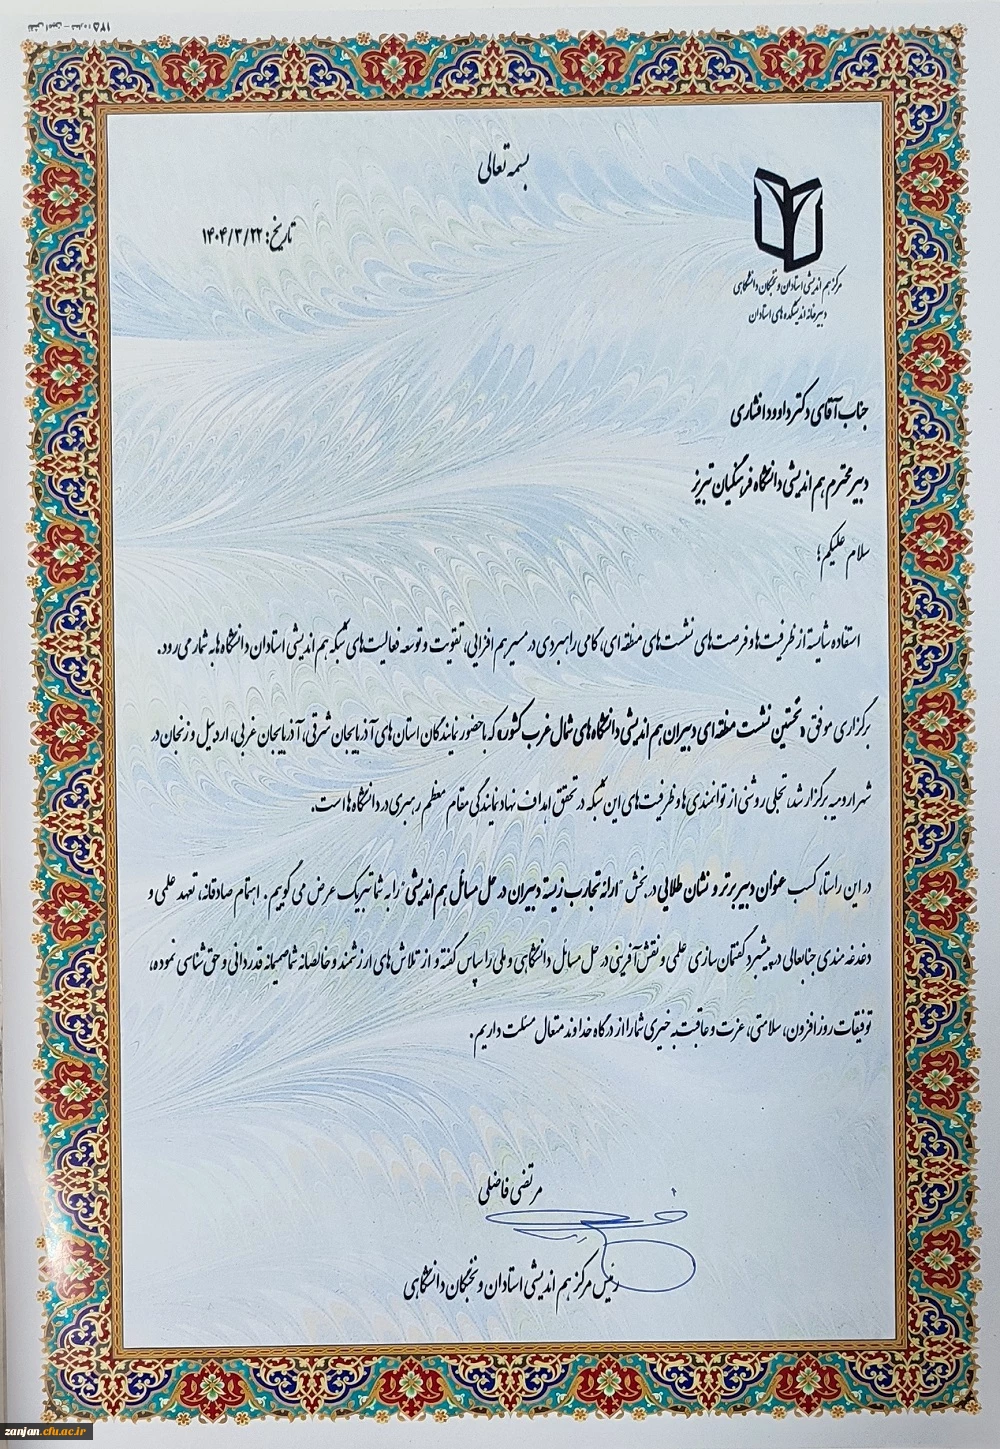 بسمه تعالی
تاریخ: ۱۴۰۴/۳/۲۲
مرکز هم اندیشی استادان و نخبگان دانشگاهی
دبیرخانه اندیشکده های استادان
جناب آقای دکتر داوود افشاری
دبیر محترم هم اندیشی دانشگاه فرهنگیان تبریز
سلام علیکم؛
استفاده شایسته از ظرفیت‌ها و فرصت‌های نشست‌های منطقه ای، گامی راهبردی در مسیر هم افزایی، تقویت و توسعه فعالیت‌های شبکه هم اندیشی استادان دانشگاه ها به شمار می رود.
برگزاری موفق «نخستین نشست منطقه ای دبیران هم اندیشی دانشگاه های شمال غرب کشور» که با حضور نمایندگان استان های آذربایجان شرقی، آذربایجان غربی، اردبیل و زنجان در
شهر ارومیه برگزار شد، تجلی روشنی از توانمندی ها و ظرفیت‌های این شبکه در تحقق اهداف نهاد نمایندگی مقام معظم رهبری در دانشگاه ها است.
در این راستا، کسب عنوان دبیر برتر و نشان طلایی در بخش "ارائه تجارب زیسته دبیران در حل مسائل هم اندیشی" را به شما تبریک عرض می گوییم. اهتمام صادقانه، تعهد علمی و
دغدغه مندی جنابعالی در پیشبرد گفتمان سازی علمی و نقش آفرینی در حل مسائل دانشگاهی و ملی را سپاس گفته و از تلاش های ارزشمند و خالصانه شما صمیمانه قدردانی و حق شناسی نموده،
توفیقات روزافزون، سلامتی، عزت و عاقبت به خیری شما را از درگاه خداوند متعال مسئلت داریم.
مرتضی فاضلی
رئیس مرکز هم اندیشی استادان و نخبگان دانشگاهی
zanjan.cfu.ac.ir